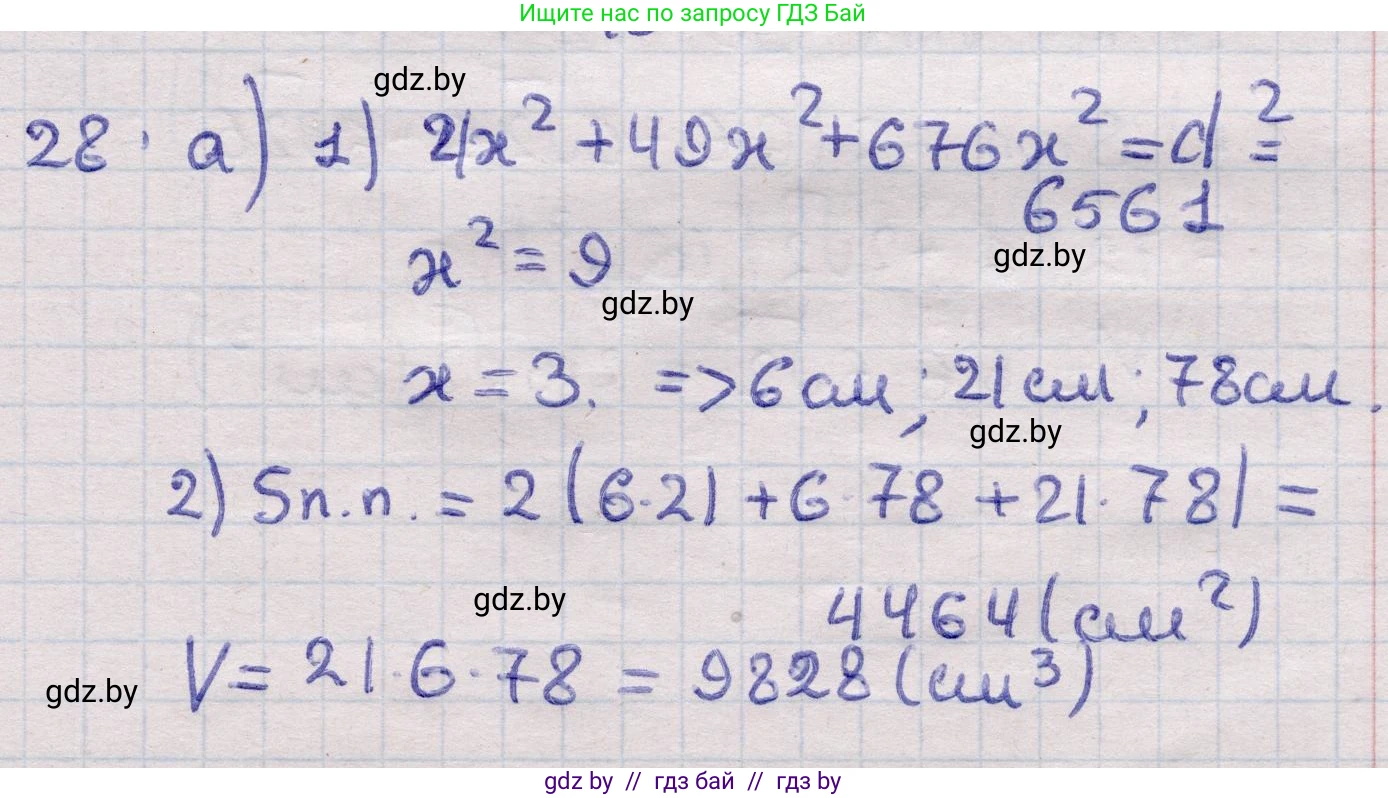 Ищите нас по запросу ГДЗ Бай
gdz.by
28. а) 1) 4x² + 49x² + 676x² = d² =
6561
gdz.by
x² = 9
gdz.by
x = 3. => 6 см; 21 см; 78 см.
gdz.by
2) Sп.п. = 2(6·21 + 6·78 + 21·78) =
gdz.by
4464 (см²)
V = 21·6·78 = 9828 (см³)
gdz.by
gdz by // гдз бай // гдз by